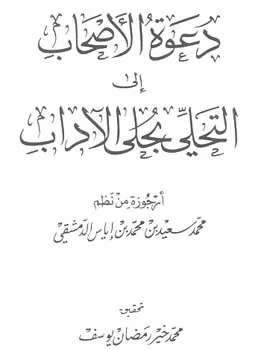 دعوة الأصحاب
إلى
التحلي بحلى الآداب
أرجوزة من نظم
محمد سعيد بن محمد بن إياس الدمشقي
تحقيق
محمد خير رمضان يوسف